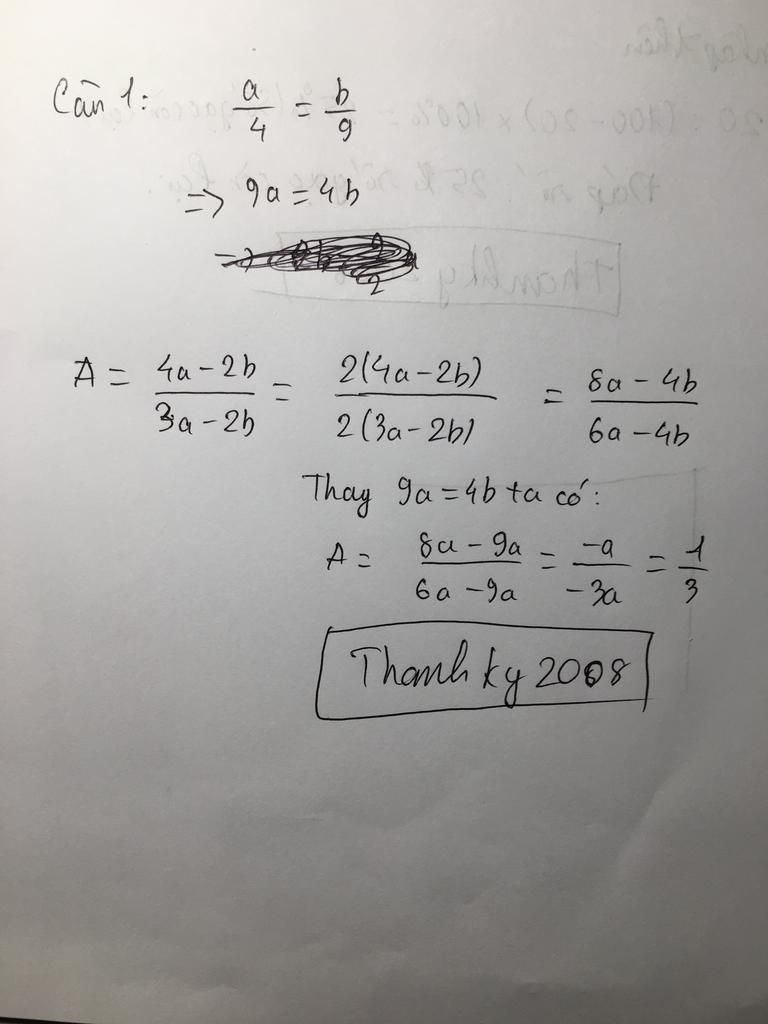 Căn 1: a/4 = b/9
=> 9a = 4b
A = (4a - 2b)/(3a - 2b) = 2(4a - 2b)/2(3a - 2b) = (8a - 4b)/(6a - 4b)
Thay 9a = 4b ta có:
A = (8a - 9a)/(6a - 9a) = -a/-3a = 1/3
Thanh ky 2008